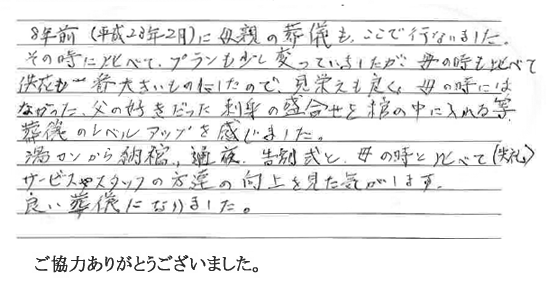 8年前(平成23年2月)に母親の葬儀も、ここで行ないました。
その時に比べて、プランも少し変っていましたが、母の時も比べて
供花も一番大きいものにしたので、見栄えも良く、母の時には
なかった、父の好きだった刺身の盛合せを棺の中に入れる等
葬儀のレベルアップを感じました。
湯カンから納棺、通夜、告別式と、母の時と比べて(失礼)
サービスやスタッフの方達の向上を見た気がします。
良い葬儀になりました。
ご協力ありがとうございました。